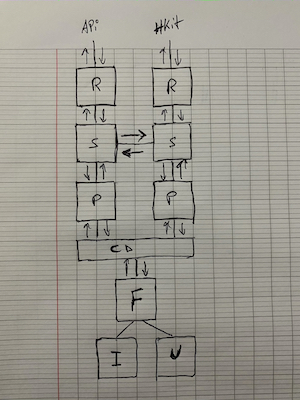 APi HKit
R R
S S
P P
CD
F
I U